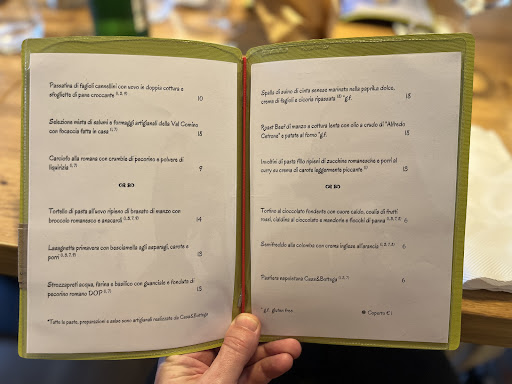 Passatina di fagioli cannellini con uovo in doppia cottura e
sfogliette di pane croccante (1, 3, 9) 10
Selezione mista di salumi e formaggi artigianali della Val Comino
con focaccia fatta in casa (1, 7) 15
Carciofo alla romana con crumble di pecorino e polvere di
liquirizia (1, 7) 9
Tortello di pasta all'uovo ripieno di brasato di manzo con
broccolo romanesco e anacardi 14
Lasagnetta primavera con besciamella agli asparagi, carote e
porri 13
Strozzapreti acqua, farina e basilico con guanciale e fonduta di
pecorino romano DOP (1, 7) 13
*Tutte le paste, preparazioni e salse sono artigianali realizzate da Casa&Bottega
Spalla di suino di cinta senese marinata nella paprika dolce,
crema di fagioli e cicoria ripassata *g.f. 15
Roast Beef di manzo a cottura lenta con olio a crudo di "Alfredo
Cetrone" e patate al forno *g.f. 15
Involtini di pasta fillo ripieni di zucchine romanesche e porri al
curry su crema di carote leggermente piccante (1) 15
Tortino al cioccolato fondente con cuore caldo, coulis di frutti
rossi, cialdina al cioccolato e mandorle e fiocchi di panna 6
Semifreddo alla colomba con crema inglese all'arancia 6
Pastiera napoletana Casa&Bottega (1, 3, 7) 6
*g.f. gluten free
Coperto € 1